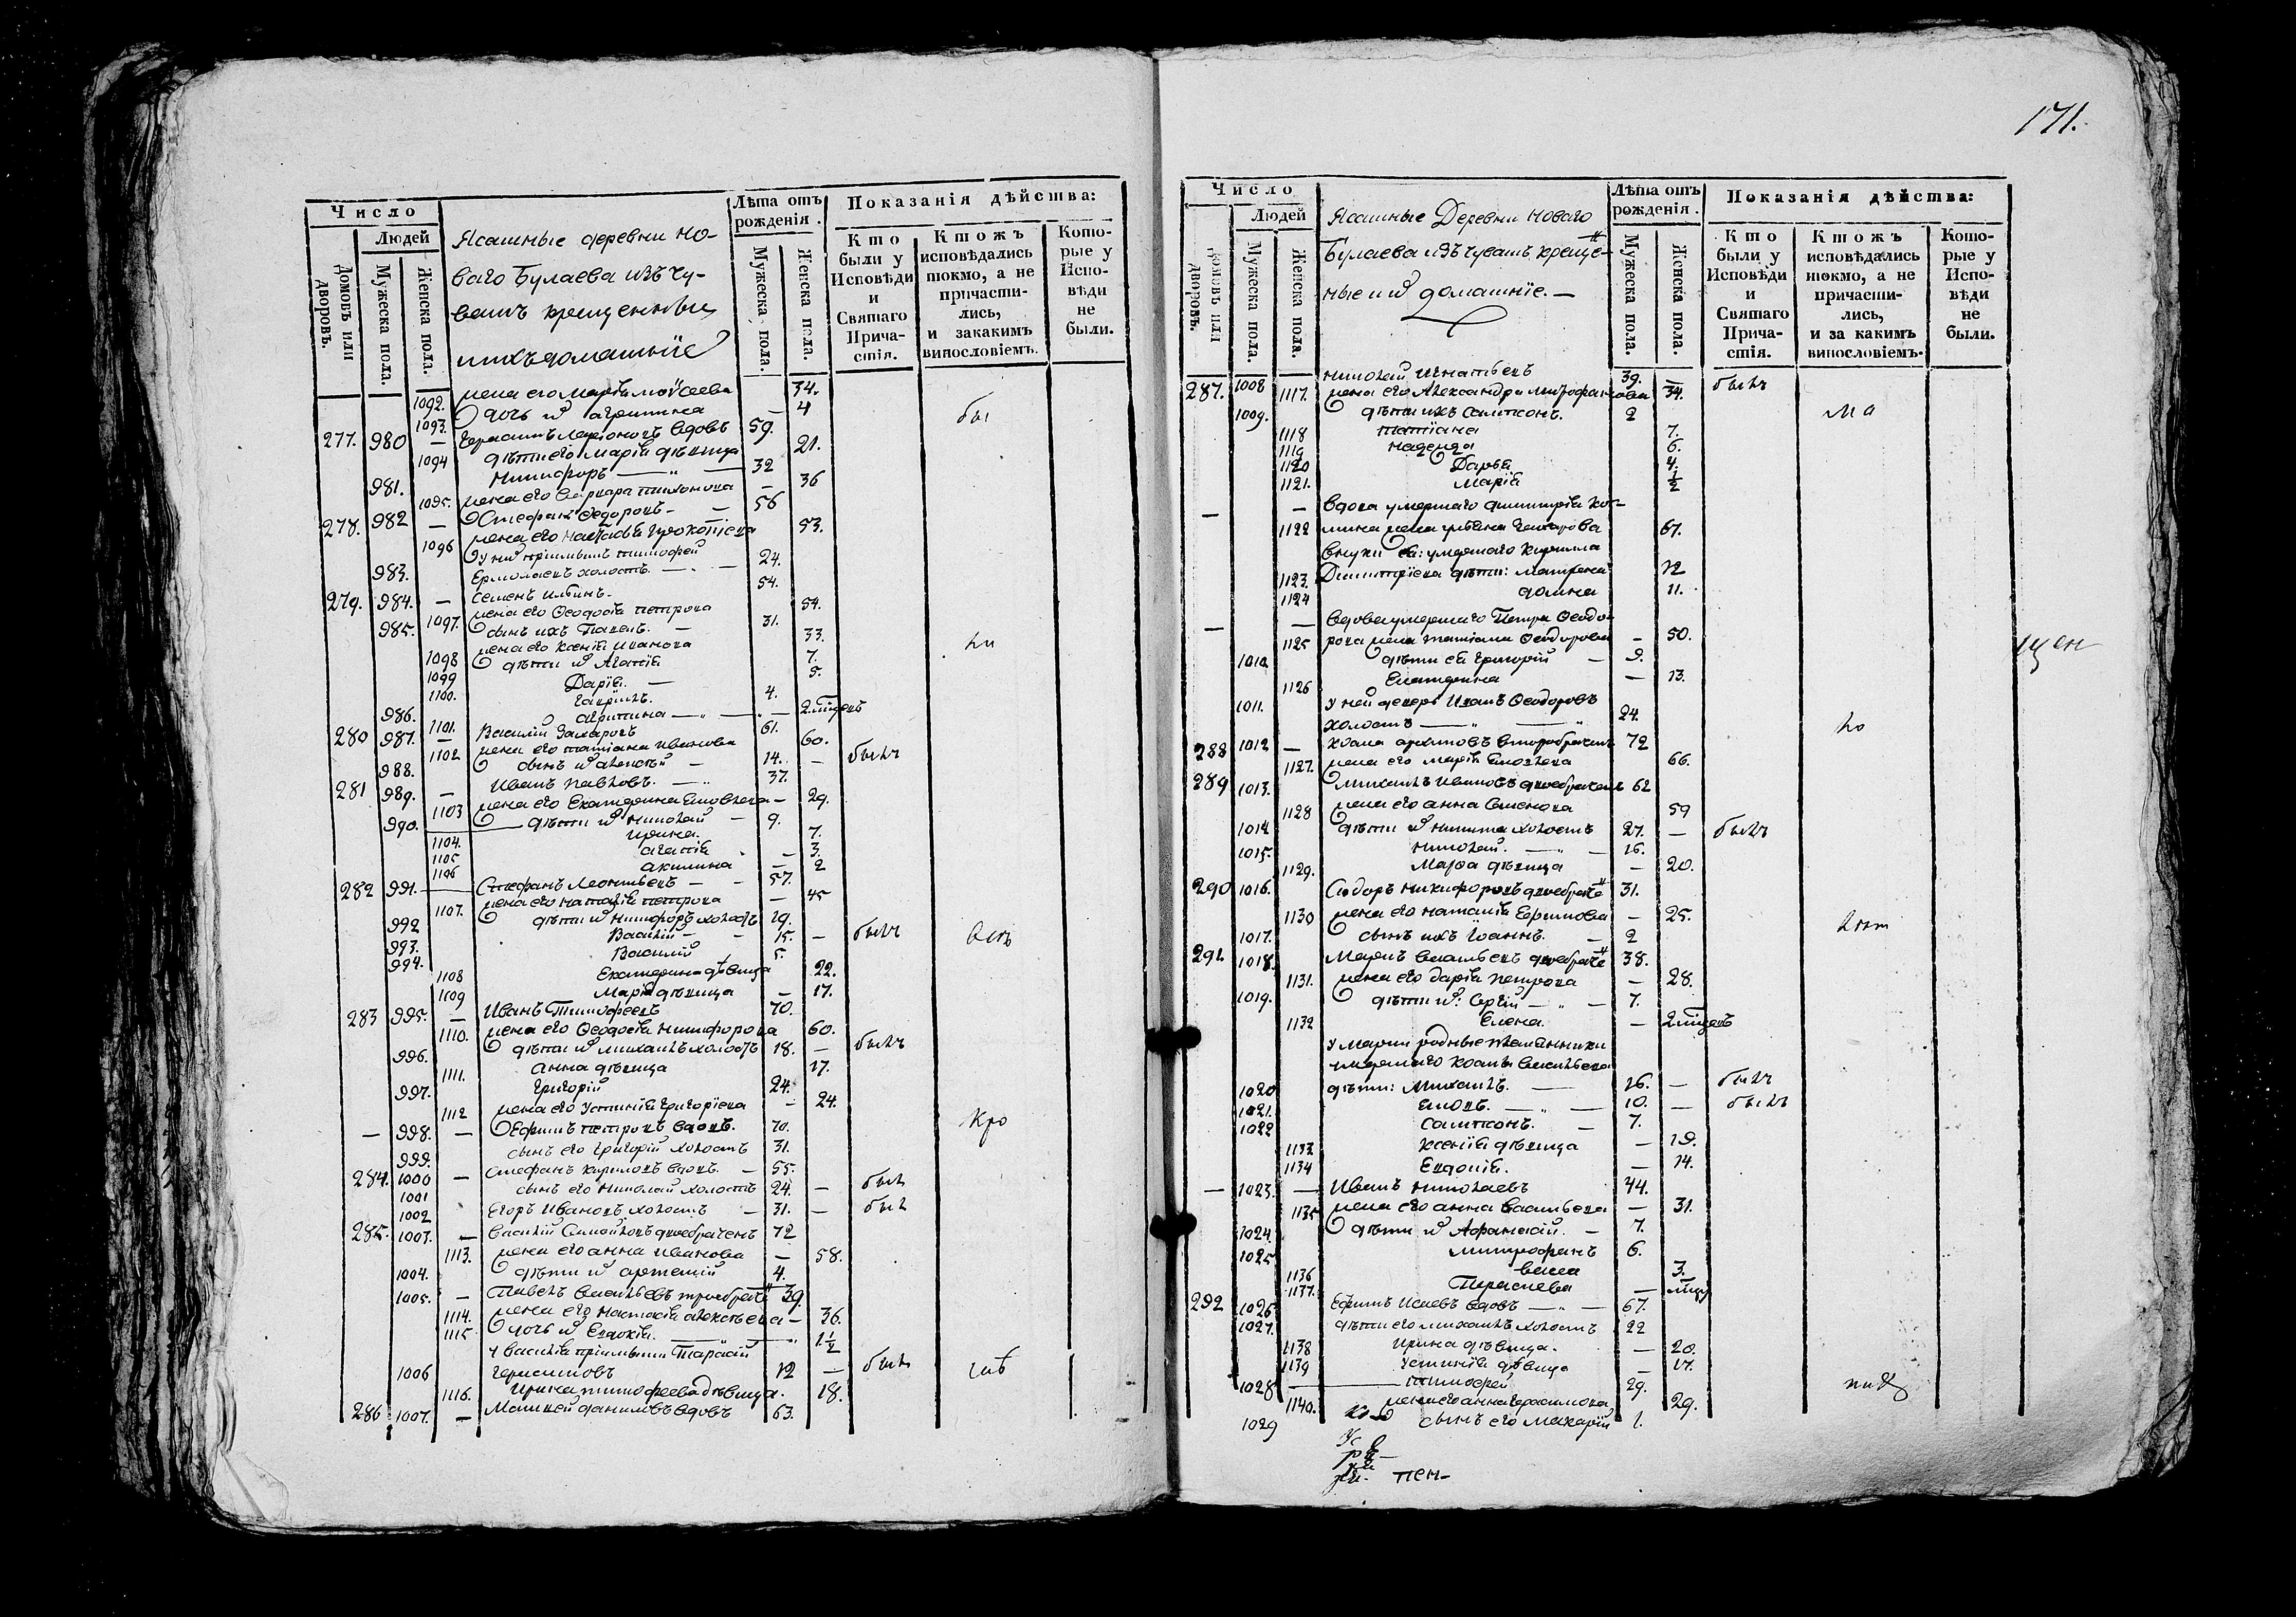 171.
Число
Людей
Домовъ или дворовъ.
Мужеска пола.
Женска пола.
Ясашные деревни Но-
ваго Булаева изъ чу-
вашъ крещенные
и ихъ домашніе
Лѣта отъ рожденія.
Мужеска пола.
Женска пола.
Показанія дѣйства:
Кто были у Исповѣди и Святаго Причастія.
Ктожъ исповѣдались токмо, а не причастились, и закакимъ винословіемъ.
Которые у Исповѣди не были.
1092. жена его Марія Моѵсеева 34.
1093. дочь и͠ Агрипина — 4 бы
277. 980 — Герасимъ Ларіоновъ вдовъ 59.
1094 дѣти его Марія дѣвица 21.
981. Никифоръ — „ — 32
1095. жена его Варвара Тихонова — 36
278. 982 — Стефанъ Ѳедоровъ — — 56
1096 жена его Наталья Прокопіева 53.
у ни͠ пріимышъ Тимофей
983. Ермолаевъ холостъ. — 24.
279. 984. — Семенъ Ильинъ. 54.
1097. жена его Ѳеодосія Петрова 54.
985. сынъ ихъ Павелъ. — 31.
1098 жена его Ксенія Иванова 33. ли
1099 дѣти и͠ Агапія 7.
1100. Дарія. — 5.
986. Гавріилъ. 4.
1101. Агрипина — „ — „ — 2 мѣсецъ
280 987. — Василій Захаровъ 61.
1102 жена его Татіана Иванова 60.
988. сынъ и͠ Алексѣй — 14. — былъ
281 989. — Иванъ Павловъ. — „ 37.
1103 жена его Екатерина Яковлева — 29.
990. дѣти и͠ Николай — 9.
1104. Ирина. 7.
1105 Агапія — 3.
1106 Акилина — 2
282 991. — Стефанъ Леонтьевъ — — 57.
1107. жена его Наталія Петрова — 45
992 дѣти и͠ Никифоръ холостъ 19.
993. Василій — — 15. — былъ вся
994. Василий 5.
1108 Екатерина дѣвица 22.
1109 Марія дѣвица — 17.
283 995. — Иванъ Тимофеевъ 70.
1110. жена его Ѳеодосія Никифорова 60.
996. дѣти и͠ Михаилъ холостъ 18. — былъ
1111. Анна дѣвица 17.
997. Григорій 24.
1112 жена его Устинія Григоріева — 24.
— 998. — Ефимъ Петровъ вдовъ. 70. кро
999. сынъ его Григорій холостъ 31.
284. 1000 — Стефанъ Кириловъ вдовъ. — 55.
1001 сынъ его Николай холостъ 24. — былъ
1002 Егоръ Ивановъ холостъ — 31. — былъ
285. 1003. — Василій Самойловъ двоебраченъ 72
1113. жена его Анна Иванова — 58.
1004. дѣти и͠ Артемій 4.
1005. — Павелъ Васильевъ троебраче͠ 39.
1114. жена его Настасія Алексѣева — 36.
1115. дочь и͠ Евдокія. — „ — „ 1½
у Василія пріимышъ Тарасій
1006 Герасимовъ 12 — былъ шѣ
1116. Ирина Тимофеева дѣвица. 18.
286 1007. — Матвей Даниловъ вдовъ 63.
Число
Людей
домовъ или дворовъ.
Мужеска пола.
Женска пола.
Ясашные Деревни Новаго
Булаева изъ чувашъ креще͠-
ные и и͠ домашніе. —
Лѣта отъ рожденія.
Мужеска пола.
Женска пола.
Показанія дѣйства:
Кто были у Исповѣди и Святаго Причастія.
Ктожъ исповѣдались токмо, а не причастились, и за какимъ винословіемъ.
Которые у Исповѣди не были.
287. 1008 Николай Игнатьевъ 39. — былъ
1117. жена его Александра Митрофанова 34.
1009. дѣти ихъ Сампсонъ. 2 ма
1118 Татіана 7.
1119 Надежда 6.
1120 Дарья 4.
1121. Марія ½
— — вдова умершаго Димитрія Ко-
1122 мина жена Ульяна Захарова 67.
внуки ея: умершаго Кирилла
1123. Димитріева дѣти: Матрена 12
1124 Домна 11.
— — вдова умершаго Петра Ѳеодо-
1125 рова жена Татіана Ѳеодорова — 50.
1010. дѣти ея Григорій — 9.
1126 Екатерина — 13.
1011. у ней деверь Иванъ Ѳеодоровъ
холостъ — „ — „ 24.
288 1012 — Козма Архиповъ второбраченъ 72 ло
1127. жена его Марія Яковлева 66.
289 1013. Михаилъ Ивановъ двоебраченъ 62
1128 жена его Анна Семенова 59
1014 дѣти и͠ Никита холостъ 27. — былъ
1015. Николай. — „ — 16.
1129. Марѳа дѣвица — 20.
290 1016. Сидоръ Никифоровъ двоебраче͠ 31.
1130 жена его Наталія Ефимова — 25.
1017. сынъ ихъ Іоаннъ. — 2 лѣт
291. 1018. Маркъ Васильевъ двоебраче͠ 38.
1131. жена его Дарія Петрова — 28.
1019. дѣти и͠: Сергій — „ — 7.
1132 Елена. — 2 мѣсецъ
у Марки родные племянники
умершаго Козмы Васильева
1020 дѣти: Михаилъ. — 16. — былъ
1021. Яковъ. — „ — 10. — былъ
1022 Сампсонъ. — 7.
1133 Ксенія дѣвица — 19.
1134 Евдокія. — 14.
— 1023. — Иванъ Николаевъ 44.
1135 жена его Анна Васильева — 31.
1024. дѣти и͠ Афанасій. — 7.
1025. Митрофанъ 6.
1136 3.
1137. Параскева —
292 1026. Ефимъ Исаевъ вдовъ — „ — 67.
1027. дѣти его Михаилъ холостъ 22
1138 Ирина дѣвица. — 20.
1139 Устинія дѣвица — 17.
1028 — Тимофей 29.
1140. жена его Анна Герасимова 29.
1029 сынъ его Макарій 1.
пен-